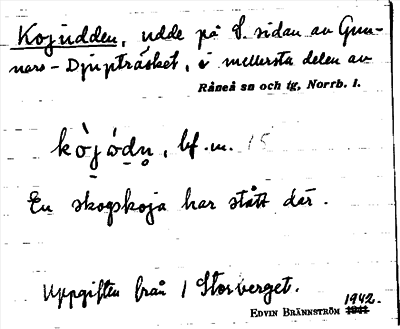 Kojudden, udde på S. sidan av Gun-
nars-Djupträsket, i mellersta delen av
Råneå sn och tg, Norrb. l.
kòjòdn̥, bf. m. 15
En skogskoja har stått där.
Uppgiften från 1 Storverget.
EDVIN BRÄNNSTRÖM 1942.
1941